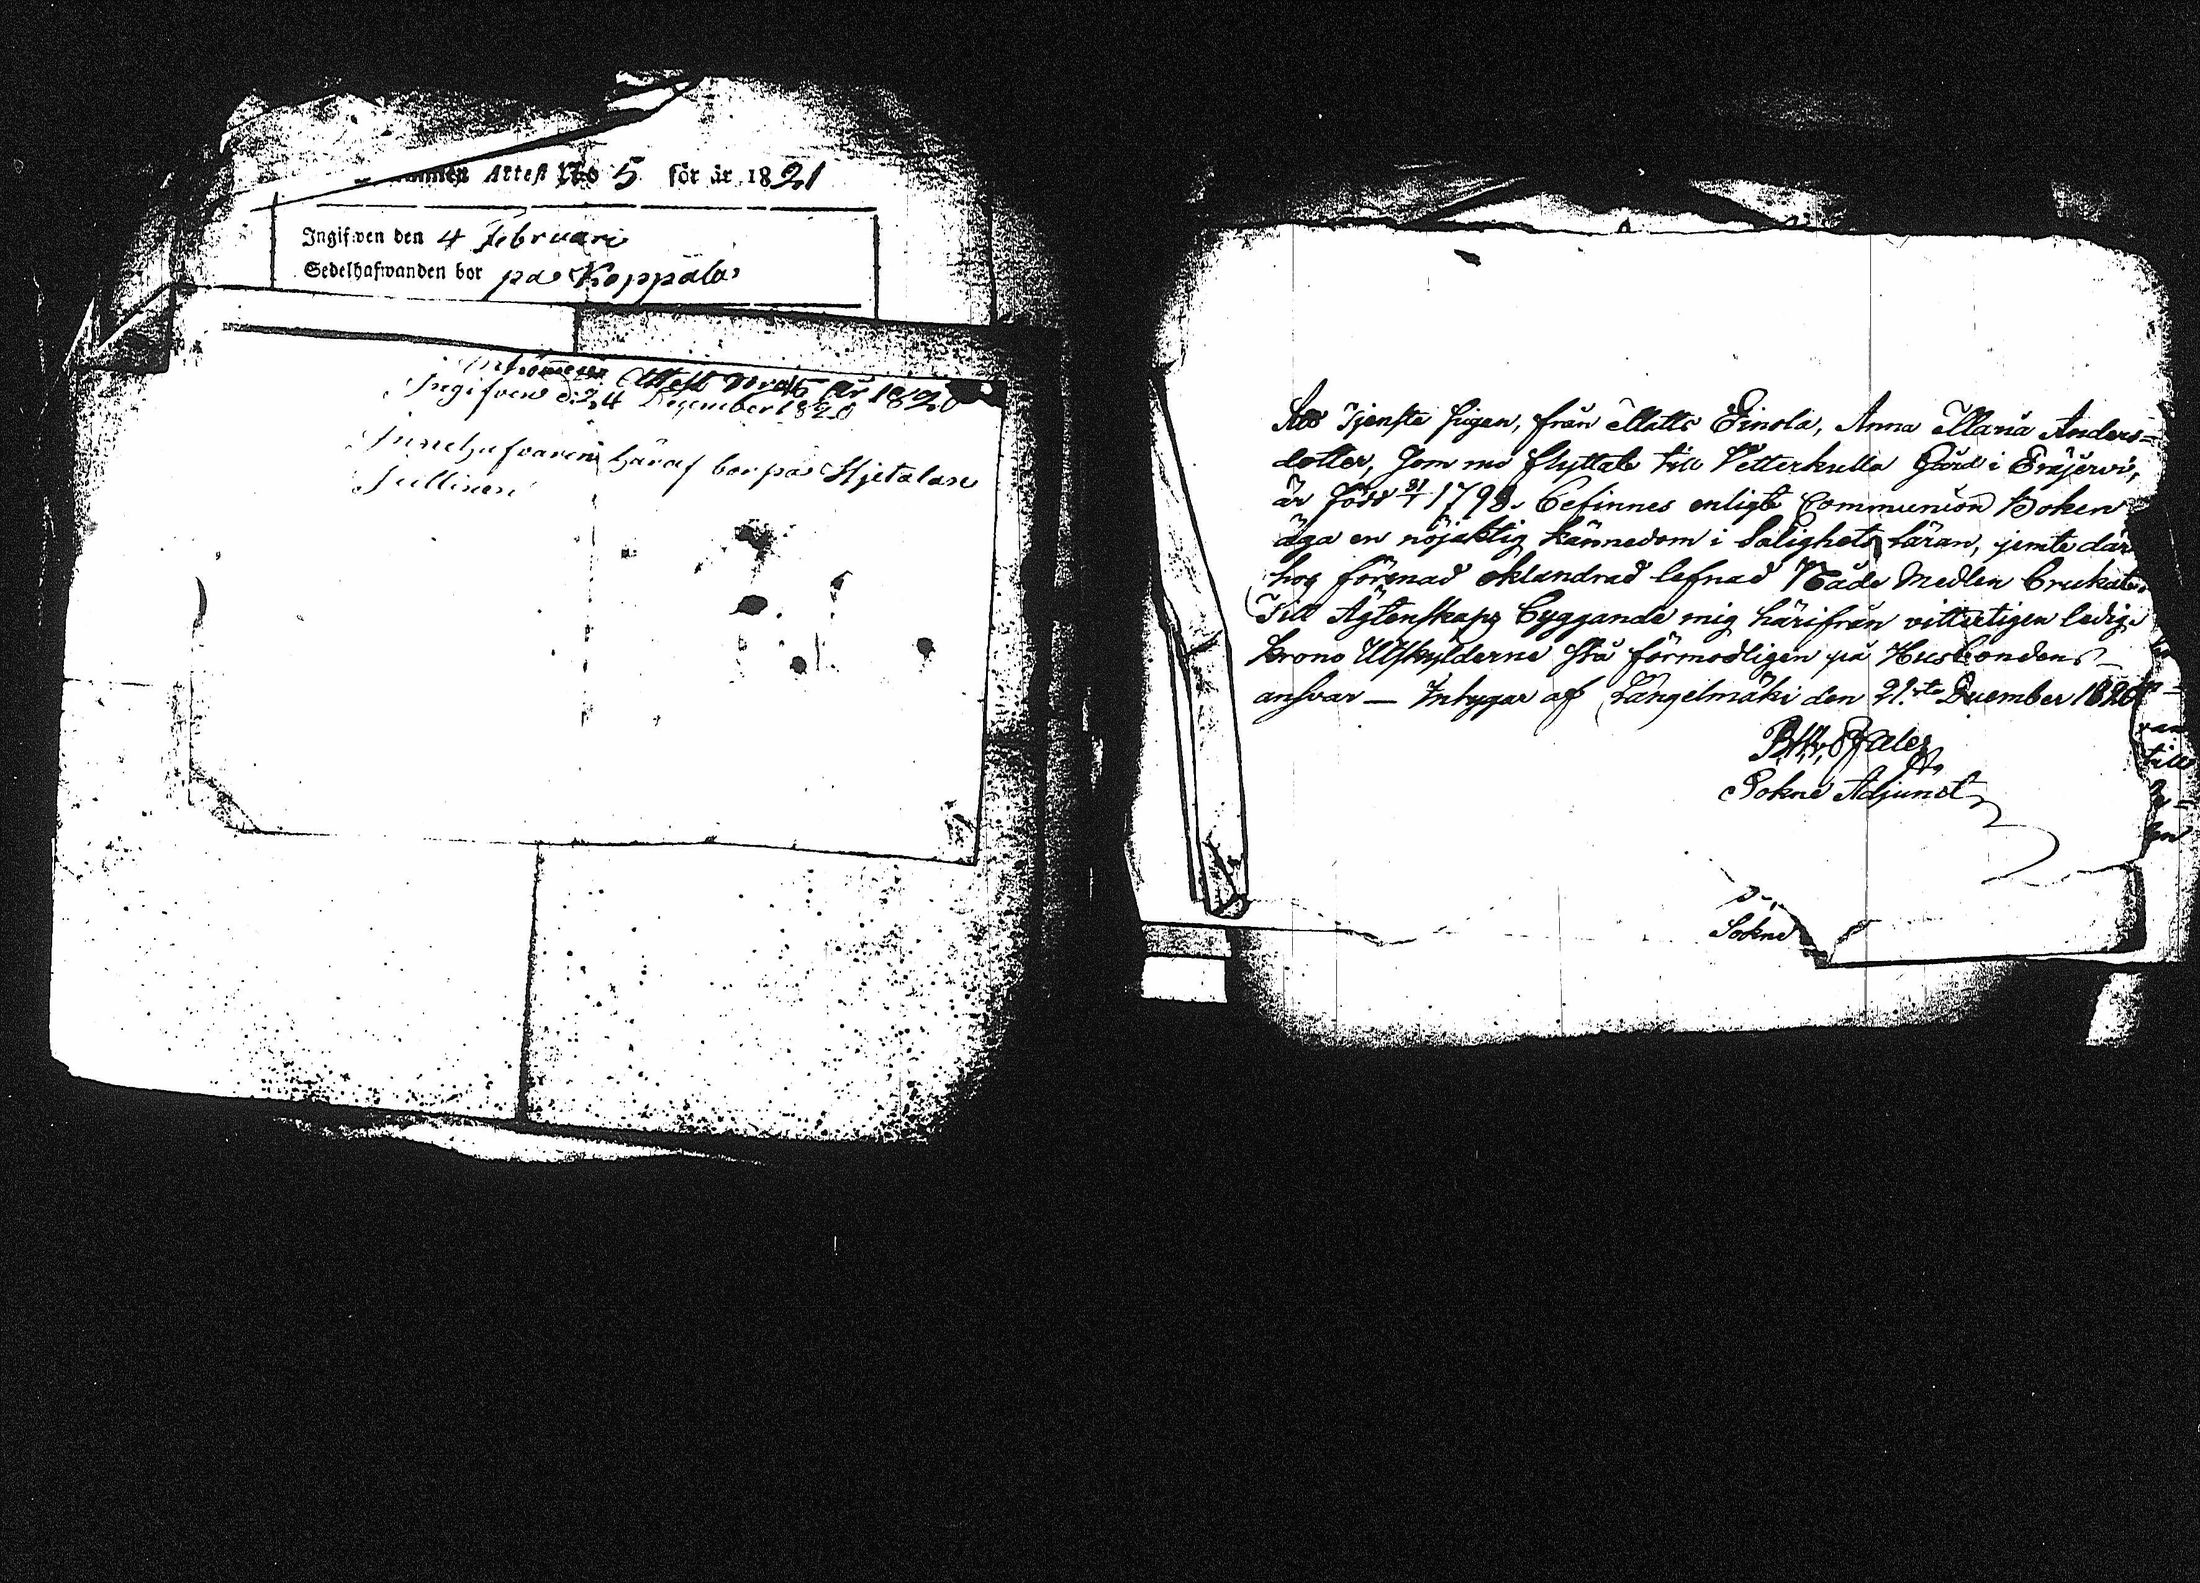 Attest No 5 för år 1821
Ingifven den 4 Februari
Sedelhafwanden bor på Koppala
Inkommen Attest Nr 45 År 1820
Ingifven d. 24 December 1820
Innehafvaren häraf bor på Hjetalan
Jullinen
Att Tjenste pigan, från Matts Einola, Anna Maria Anders=
dotter, som nu flyttat till Vetterkulla Gård i Eräjervi,
är född 31/1 1798. befinnes enligt Communion Boken
äga en nöjaktig kännedom i Salighets läran, jemte där
hos förenad oklandrad lefnad Nåde Medlen brukat.
Till Ägtenskaps byggande mig härifrån vitterligen ledig.
Krono Utskylderne stå förmodligen på Husbondens
ansvar — Intygar af Längelmäki den 21.sta December 1820
Sokne Adjunct
till
Sokne